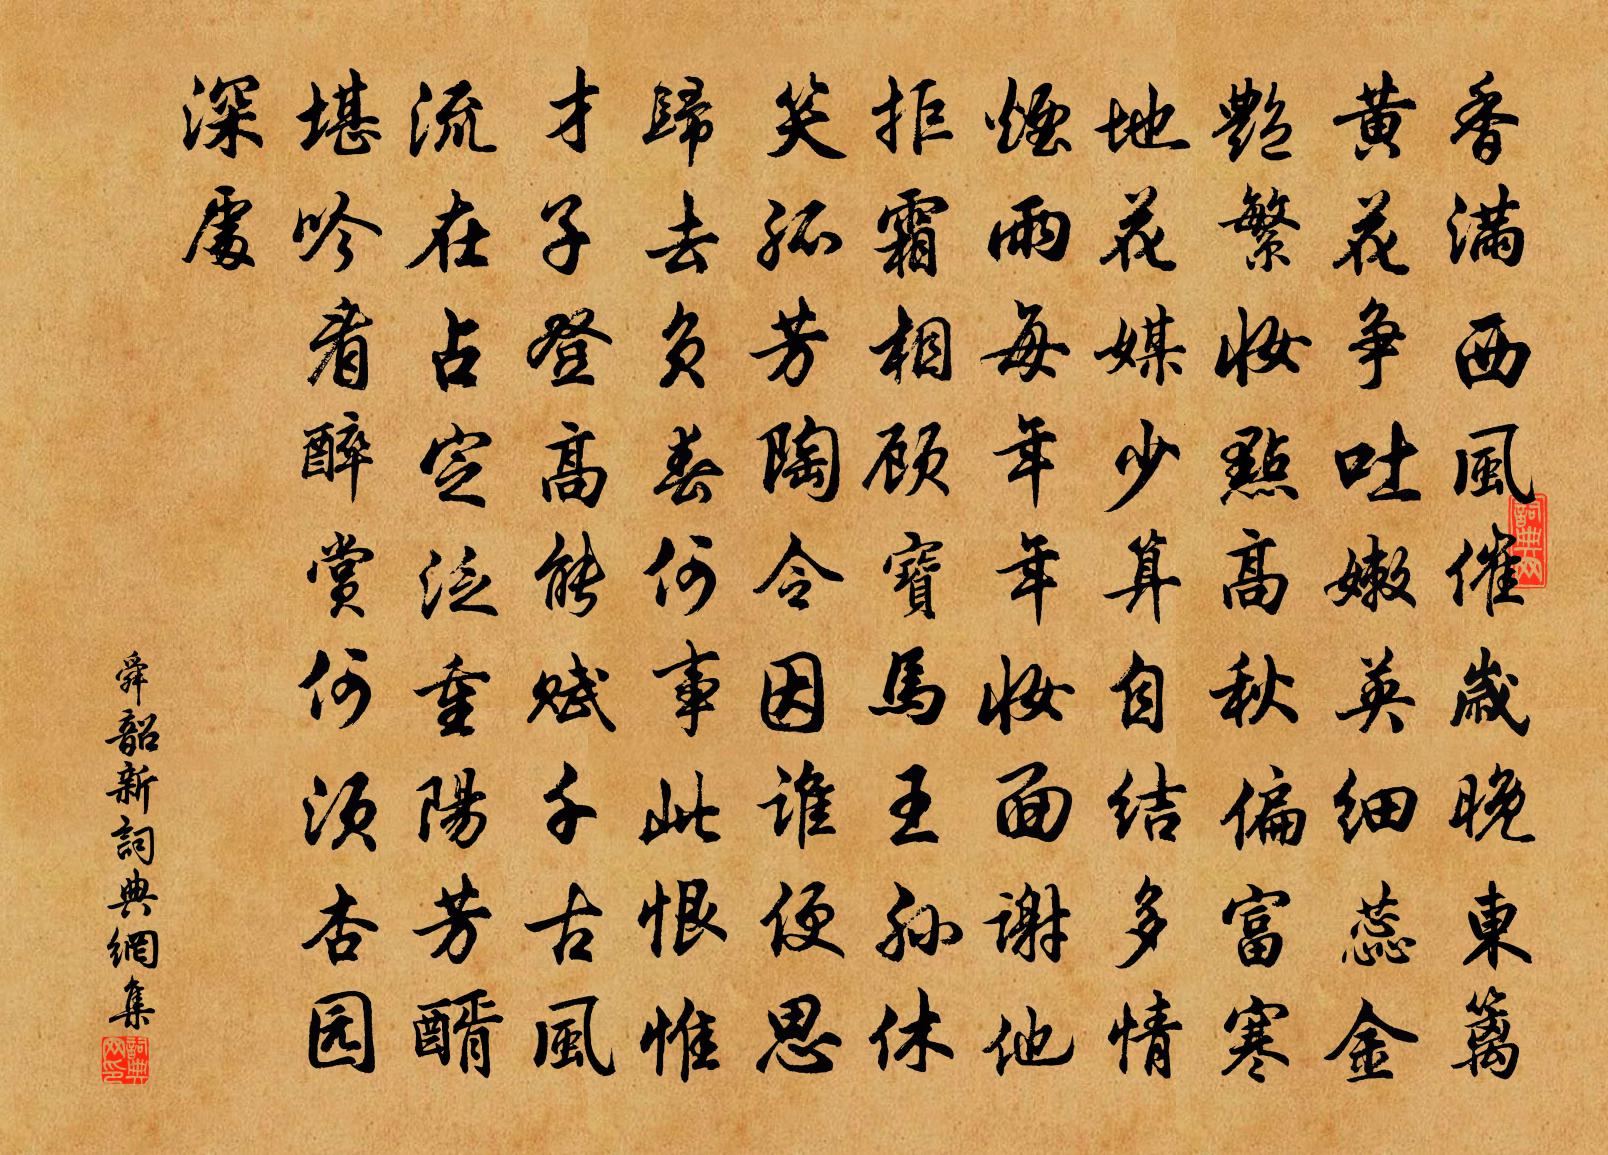 香满西風催歲晚東籬
黄花爭吐嫩英细蕊金
艷繁妝點高秋偏富寒
地花媒少算自结多情
煙雨每年年妝面謝他
拒霜相顾寶馬王孙休
笑孤芳陶令因谁便思
歸去负春何事此恨惟
才子登高能赋千古風
流在占定泛重陽芳醑
堪吟看醉赏何须杏园
深處
舜韶新詞典網集
詞典网
詞典网印